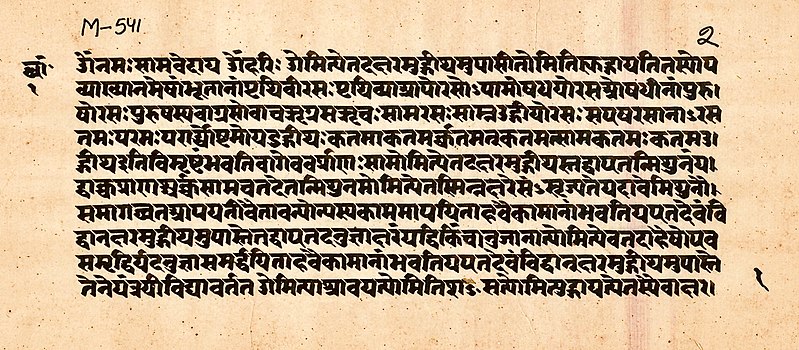 M-541
२
छां॰
१
ॐनमःसामवेदाय ॐहरिः ॐमित्येतदक्षरमुद्गीथमुपासीतोमितिह्युद्गायतितस्योप
व्याख्यानमेषांभूतानांपृथिवीरसःपृथिव्याआपोरसोऽपामोषधयोरसओषधीनांपुरु।
षोरसःपुरुषस्यवाग्रसोवाचऋग्रसऋचःसामरसःसाम्नउद्गीथोरसःसएषरसानाऽरस
तमःपरमःपरार्ध्योष्टमोयउद्गीथःकतमाकतमर्क्कतमत्कतमत्सामकतमःकतमउ।
द्गीथइतिविमृष्टंभवतिवागेवर्क्प्राणःसामोमित्येतदक्षरमुद्गीथस्तद्वाएतन्मिथुनंय।
द्वाक्चप्राणश्चर्क्चसामचतदेतन्मिथुनमोमित्येतस्मिन्नक्षरेसꣳऽसृज्यतेयदावैमिथुनौ।
समागच्छतआपयतोवैतावन्योन्यस्यकाममापयिताहवैकामानांभवतियएतदेवंवि
द्वानक्षरमुद्गीथमुपास्तेतद्वाएतदनुज्ञाक्षरंयद्धिकिंचानुजानात्योमित्येवतदाहैषोएव
समृद्धिर्यदनुज्ञासमर्द्धयिताहवैकामानांभवतियएतदेवंविद्वानक्षरमुद्गीथमुपास्ते
तेनेयंत्रयीविद्यावर्तत ॐमित्याश्रावयत्योमितिशꣳऽसत्योमित्युद्गायत्येतस्यैवाक्षर।
१